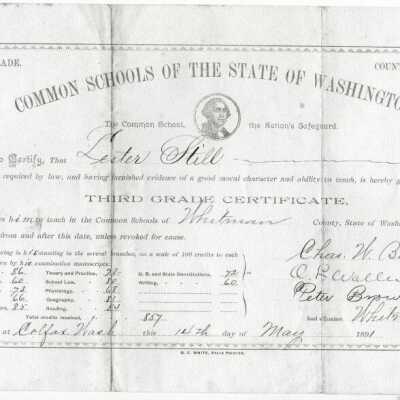 ADE. COUN
COMMON SCHOOLS OF THE STATE OF WASHINGTO
The Common School, the Nation's Safeguard.
o Certify, That Lester Still
required by law, and having furnished evidence of a good moral character and ability to teach, is hereby g
THIRD GRADE CERTIFICATE,
him to teach in the Common Schools of Whitman County, State of Wash
from and after this date, unless revoked for cause.
ing is his standing in the several branches, on a scale of 100 credits to each
by his examination manuscripts:
86 Theory and Practice, 78 U. S. and State Constitutions, 72
60 School Law, 80 Writing, 60
73 Physiology, 68
66 Geography,
85 Reading,
Total credits received, 857
Chas. W. B
Peter Brow
County, Whitm
at Colfax Wash this 14th day of May 1891
O. C. WHITE, State Printer.